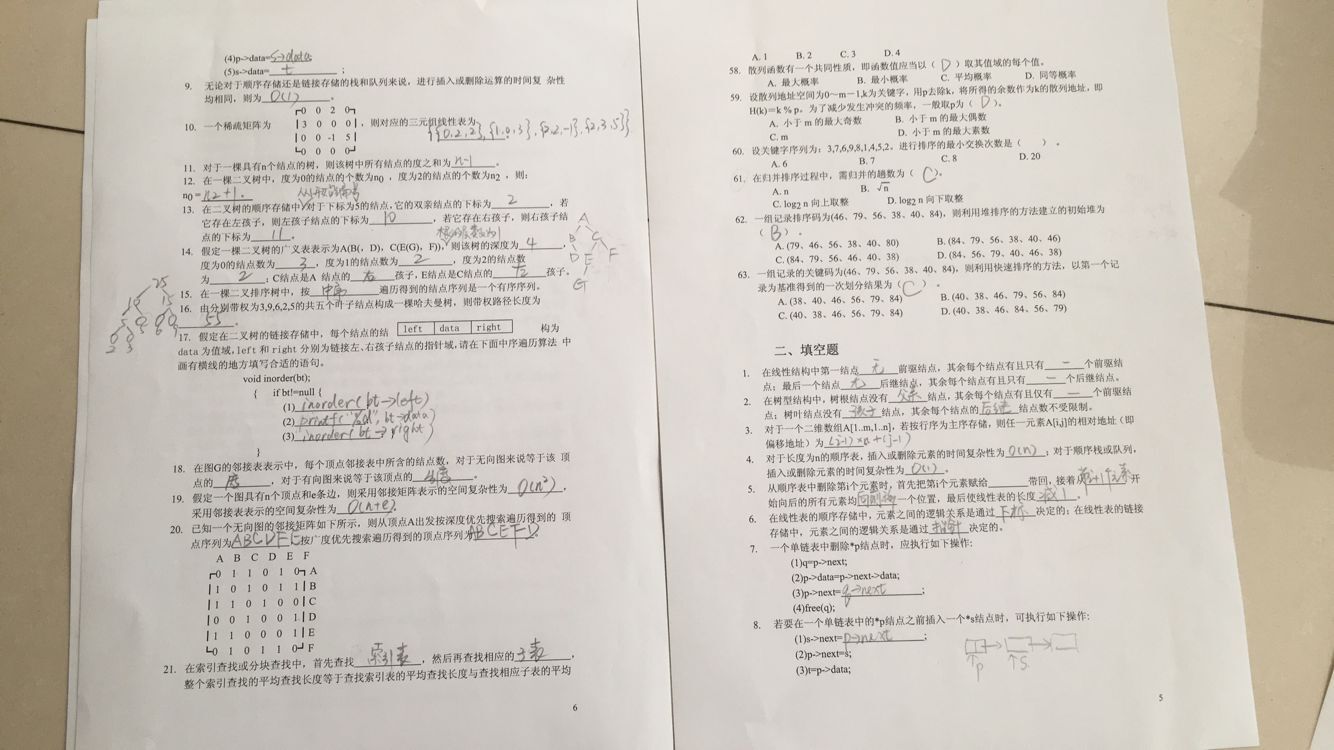 (4)p->data=s->data;
(5)s->data= t ;
9. 无论对于顺序存储还是链接存储的栈和队列来说，进行插入或删除运算的时间复 杂性
均相同，则为 O(1) 。
0 0 2 0
10. 一个稀疏矩阵为 3 0 0 0 ，则对应的三元组线性表为 {{0,2,2},{1,0,3},{2,2,-1},{2,3,5}}
0 0 -1 5
0 0 0 0
11. 对于一棵具有n个结点的树，则该树中所有结点的度之和为 n-1 。
12. 在一棵二叉树中，度为0的结点的个数为n0 ，度为2的结点的个数为n2 ，则：
n0 = n2+1 。
13. 在二叉树的顺序存储中，对于下标为5的结点，它的双亲结点的下标为 2 ，若
它存在左孩子，则左孩子结点的下标为 10 ，若它存在右孩子，则右孩子结
点的下标为 11 。
14. 假定一棵二叉树的广义表表示为A(B(，D)，C(E(G)，F))，则该树的深度为 4 ，
度为0的结点数为 3 ，度为1的结点数为 2 ，度为2的结点数
为 2 ；C结点是A 结点的 右 孩子，E结点是C结点的 左 孩子。
A
B C
D E F
G
15. 在一棵二叉排序树中，按 中序 遍历得到的结点序列是一个有序序列。
16. 由分别带权为3,9,6,2,5的共五个叶子结点构成一棵哈夫曼树，则带权路径长度为
55 。
25
10 15
5
2 3
17. 假定在二叉树的链接存储中，每个结点的结 left data right 构为
data为值域，left和right分别为链接左、右孩子结点的指针域，请在下面中序遍历算法 中
画有横线的地方填写合适的语句。
void inorder(bt);
{ if bt!=null {
(1) inorder(bt->left)
(2) printf("%d", bt->data)
(3) inorder(bt->right)
}
18. 在图G的邻接表表示中，每个顶点邻接表中所含的结点数，对于无向图来说等于该 顶
点的 度 ，对于有向图来说等于该顶点的 出度 。
19. 假定一个图具有n个顶点和e条边，则采用邻接矩阵表示的空间复杂性为 O(n²) ，
采用邻接表表示的空间复杂性为 O(n+e) 。
20. 已知一个无向图的邻接矩阵如下所示，则从顶点A出发按深度优先搜索遍历得到的 顶
点序列为ABCDFE，按广度优先搜索遍历得到的顶点序列为ABCEFD。
A B C D E F
0 1 1 0 1 0 A
1 0 1 0 1 1 B
1 1 0 1 0 0 C
0 0 1 0 0 1 D
1 1 0 0 0 1 E
0 1 0 1 1 0 F
21. 在索引查找或分块查找中，首先查找 索引表 ，然后再查找相应的 子表 ，
整个索引查找的平均查找长度等于查找索引表的平均查找长度与查找相应子表的平均
6
A. 1 B. 2 C. 3 D. 4
58. 散列函数有一个共同性质，即函数值应当以（ D ）取其值域的每个值。
A. 最大概率 B. 最小概率 C. 平均概率 D. 同等概率
59. 设散列地址空间为0～m－1,k为关键字，用p去除k，将所得的余数作为k的散列地址，即
H(k)＝k％p。为了减少发生冲突的频率，一般取p为（ D ）。
A. 小于 m 的最大奇数 B. 小于 m 的最大偶数
C. m D. 小于 m 的最大素数
60. 设关键字序列为：3,7,6,9,8,1,4,5,2。进行排序的最小交换次数是（ ） 。
A. 6 B. 7 C. 8 D. 20
61. 在归并排序过程中，需归并的趟数为（ C ）。
A. n B. √n
C. log2 n 向上取整 D. log2 n 向下取整
62. 一组记录排序码为(46、79、56、38、40、84)，则利用堆排序的方法建立的初始堆为
（ B ）。
A. (79、46、56、38、40、80) B. (84、79、56、38、40、46)
C. (84、79、56、46、40、38) D. (84、56、79、40、46、38)
63. 一组记录的关键码为(46、79、56、38、40、84)，则利用快速排序的方法，以第一个记
录为基准得到的一次划分结果为（ C ）。
A. (38、40、46、56、79、84) B. (40、38、46、79、56、84)
C. (40、38、46、56、79、84) D. (40、38、46、84、56、79)
二、填空题
1. 在线性结构中第一结点 无 前驱结点，其余每个结点有且只有 一 个前驱结
点；最后一个结点 无 后继结点，其余每个结点有且只有 一 个后继结点。
2. 在树型结构中，树根结点没有 父亲 结点，其余每个结点有且仅有 一 个前驱结
点；树叶结点没有 孩子 结点，其余每个结点的 后继 结点数不受限制。
3. 对于一个二维数组A[1..m,1..n]，若按行序为主序存储，则任一元素A[i,j]的相对地址（即
偏移地址）为 (i-1)×n+(j-1)
4. 对于长度为n的顺序表，插入或删除元素的时间复杂性为 O(n) ；对于顺序栈或队列，
插入或删除元素的时间复杂性为 O(1) 。
5. 从顺序表中删除第i个元素时，首先把第i个元素赋给 带回，接着从第i+1个元素开
始向后的所有元素均 向前移 一个位置，最后使线性表的长度 减1 。
6. 在线性表的顺序存储中，元素之间的逻辑关系是通过 下标 决定的；在线性表的链接
存储中，元素之间的逻辑关系是通过 指针 决定的。
7. 一个单链表中删除*p结点时，应执行如下操作:
(1)q=p->next;
(2)p->data=p->next->data;
(3)p->next= q->next ;
(4)free(q);
8. 若要在一个单链表中的*p结点之前插入一个*s结点时，可执行如下操作:
(1)s->next= p->next ;
(2)p->next=s;
(3)t=p->data;
p s
5